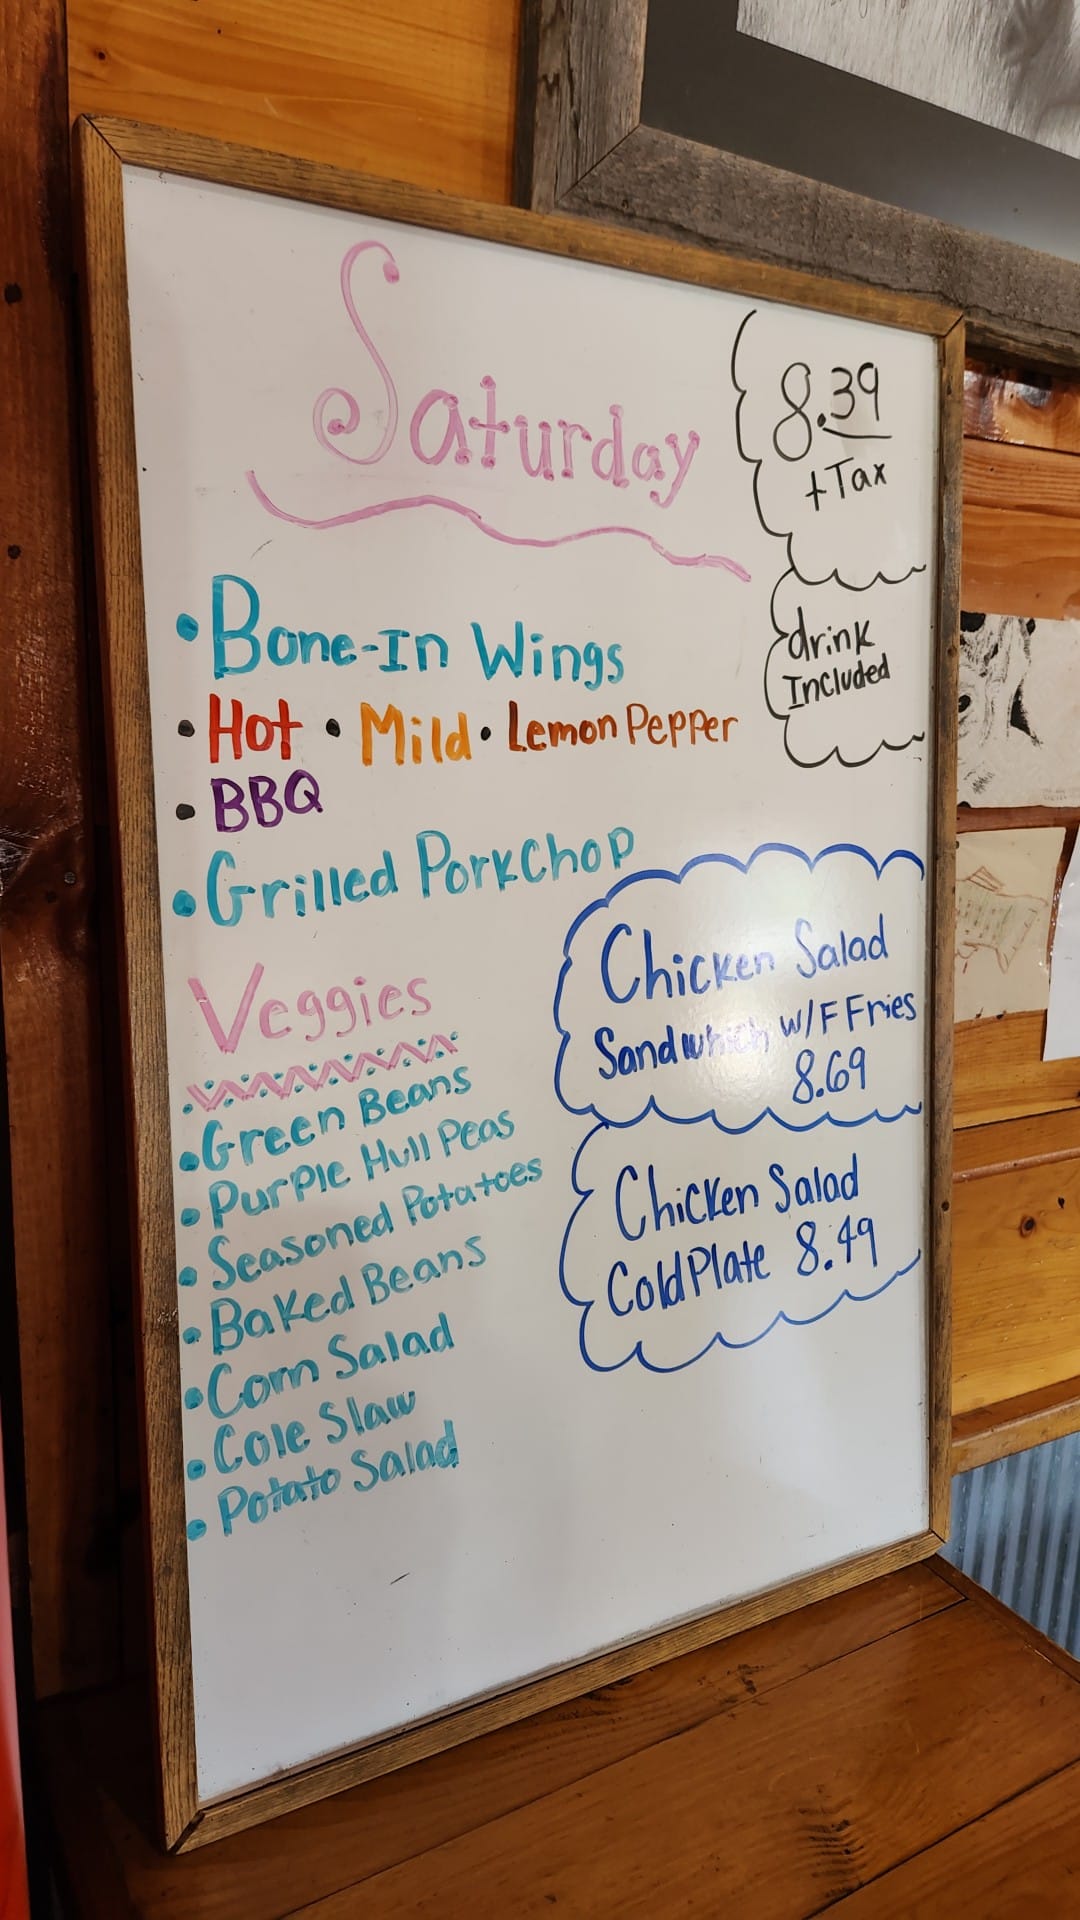 Saturday
8.39
+Tax
drink
Included
• Bone-In Wings
• Hot • Mild • Lemon Pepper
• BBQ
• Grilled Porkchop
Veggies
• Green Beans
• Purple Hull Peas
• Seasoned Potatoes
• Baked Beans
• Corn Salad
• Cole Slaw
• Potato Salad
Chicken Salad
Sandwhich w/F Fries
8.69
Chicken Salad
Cold Plate 8.49